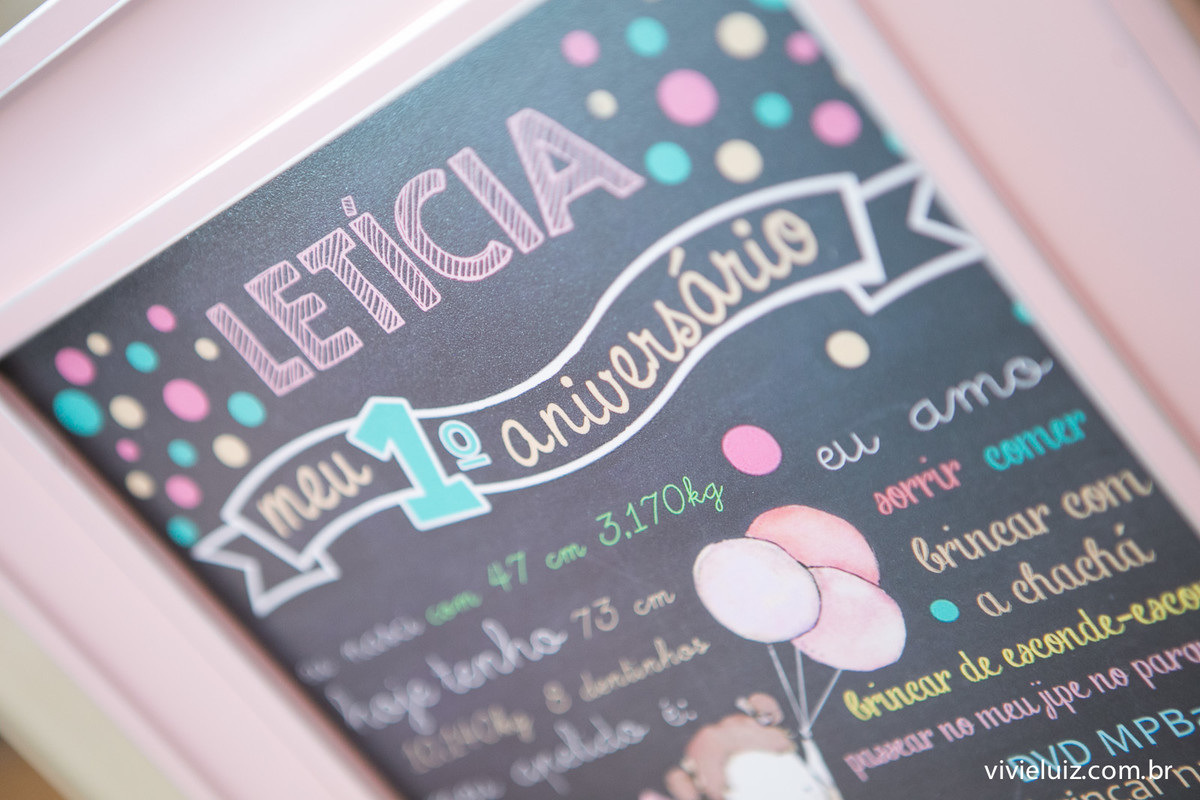 LETÍCIA
meu 1º aniversário
nasci com 47 cm 3,170kg
hoje tenho 73 cm
8 dentinhos
meu apelido é:
eu amo
sorrir comer
brincar com
a chachá
brincar de esconde-escon
passear no meu jipe no parq
DVD MPB
vivieluiz.com.br